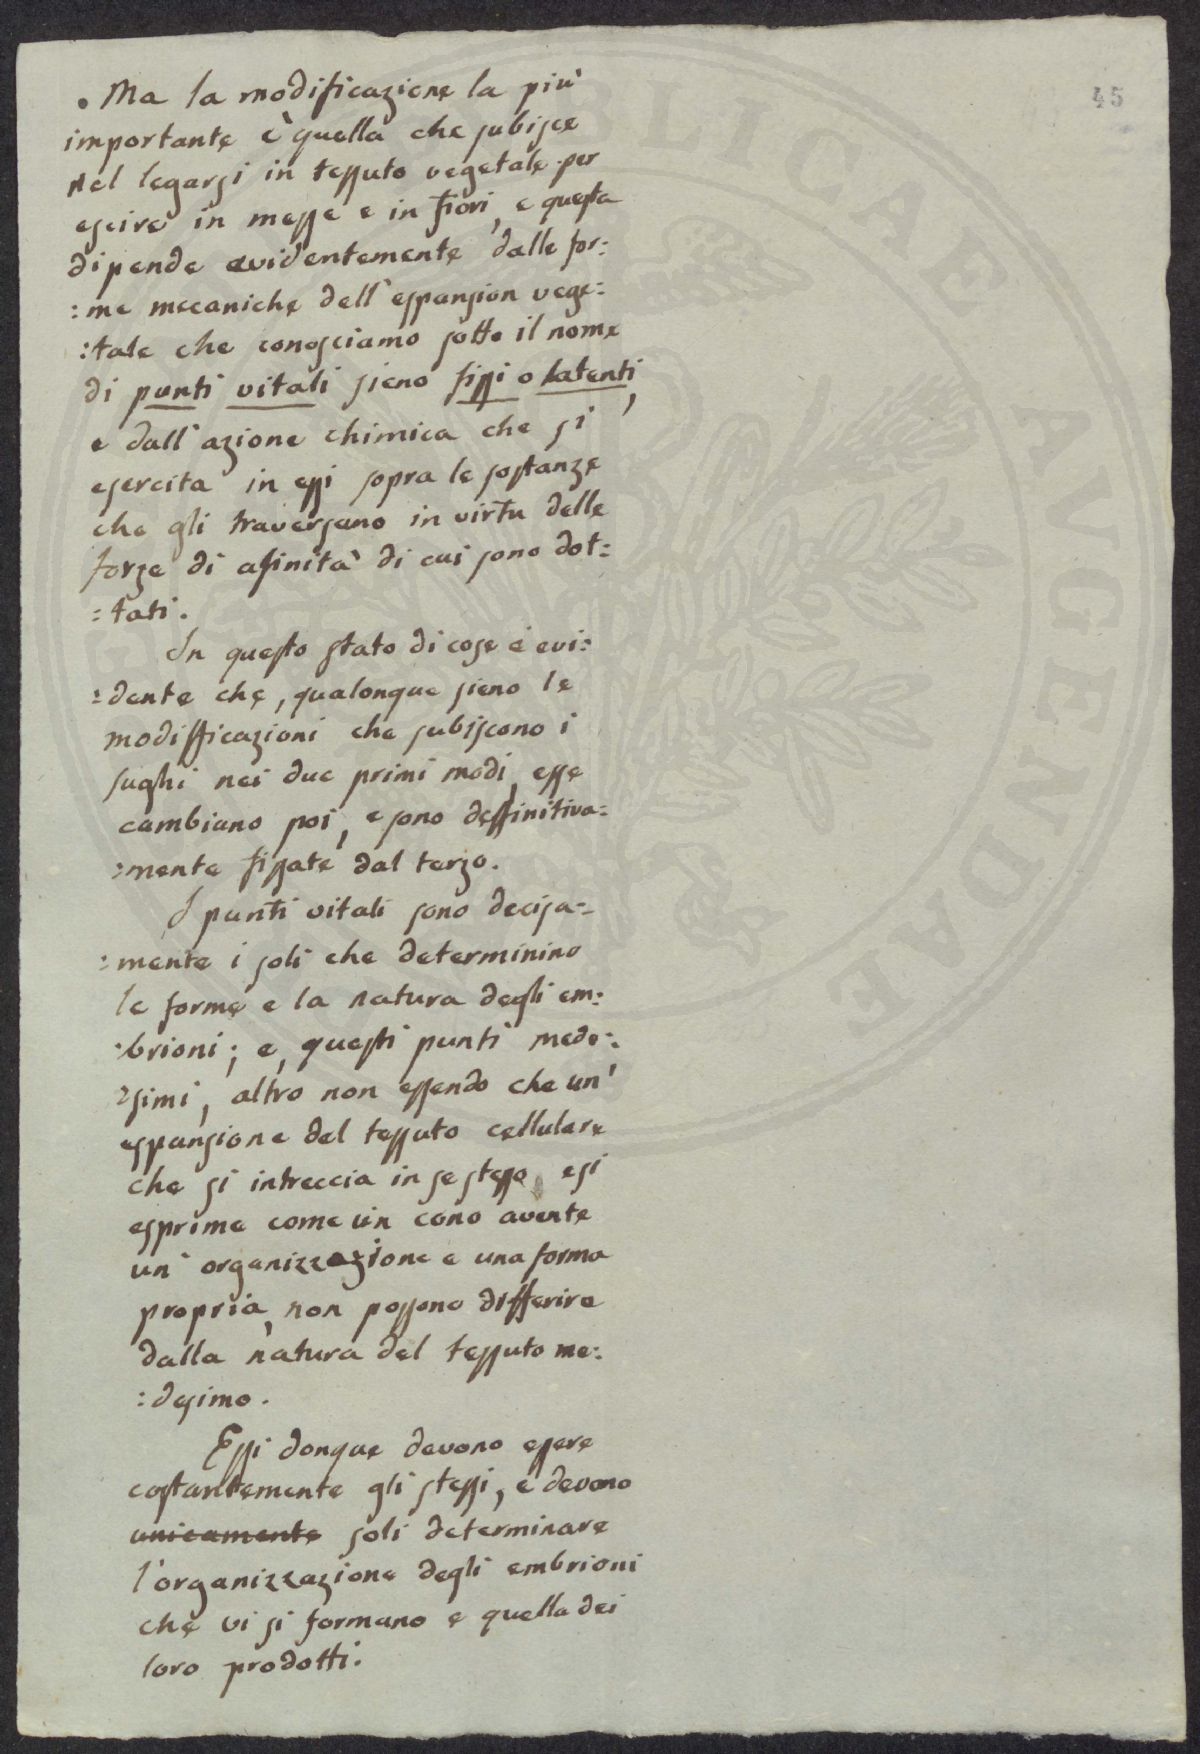 45
. Ma la modificazione la più
importante è quella che subisce
nel legarsi in tessuto vegetale per
escire in messe e in fiori, e questa
dipende evidentemente dalle for:
:me mecaniche dell'espansion vege:
:tale che conosciamo sotto il nome
di punti vitali sieno fissi o latenti,
e dall'azione chimica che si
esercita in essi sopra le sostanze
che gli traversano in virtu delle
forze di afinità di cui sono dot:
:tati.
In questo stato di cose è evi:
:dente che, qualonque sieno le
modifficazioni che subiscono i
sughi nei due primi modi, esse
cambiano poi, e sono deffinitiva:
:mente fissate dal terzo.
I punti vitali sono decisa:
:mente i soli che determinino
le forme e la natura degli em:
:brioni; e, questi punti mede:
:simi, altro non essendo che un'
espansione del tessuto cellulare
che si intreccia in se stesso, e si
esprime come un cono avente
un' organizzazione e una forma
propria, non possono differire
dalla natura del tessuto me:
:desimo.
Essi donque devono essere
costantemente gli stessi, e devono
unicamente soli determinare
l'organizzazione degli embrioni
che vi si formano e quella dei
loro prodotti.
PUBLICAE AUGENDAE